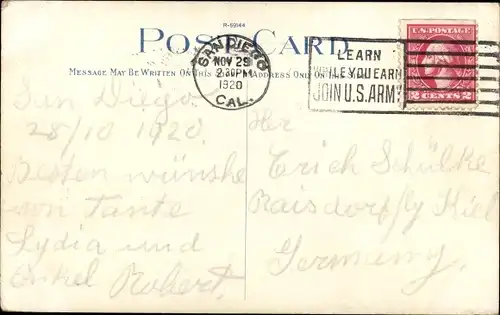 R-59144
POST CARD
SAN DIEGO
NOV 29
2:30PM
1920
CAL.
LEARN
WHILE YOU EARN
JOIN U.S. ARMY
U.S. POSTAGE
2 CENTS 2
MESSAGE MAY BE WRITTEN ON THIS ADDRESS ONLY ON THIS
San Diego
28/10 1920.
Besten wünshe
von Tante
Lydia und
Onkel Robert.
Her
Erich Schülke
Raisdorf/by Kiel
Germemy.